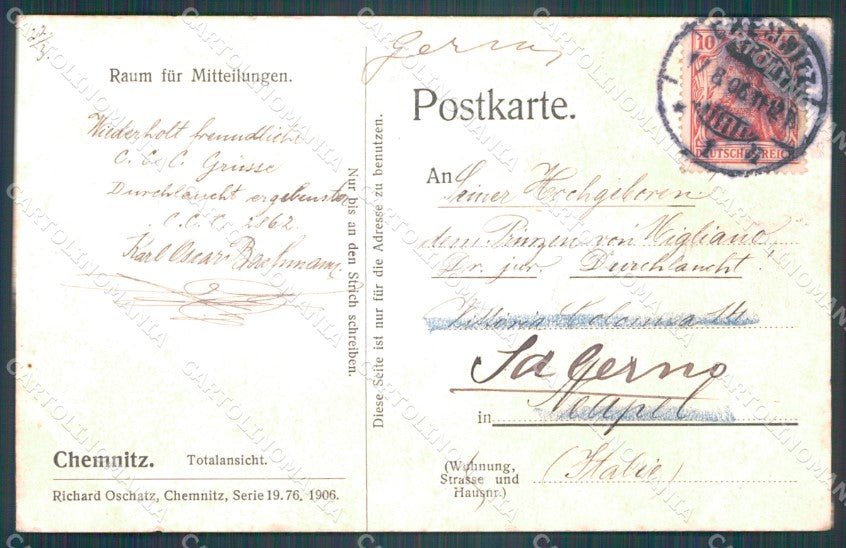 Gerno
Raum für Mitteilungen.
Wiederholt freundliche
C. C. C. Grüsse
Durchlaucht ergebenster
C.C.C. 2862
Karl Oscar Bachmann.
Nur bis an den Strich schreiben.
Diese Seite ist nur für die Adresse zu benutzen.
Chemnitz. Totalansicht.
Richard Oschatz, Chemnitz, Serie 19.76, 1906.
Postkarte.
10
CHEMNITZ
8 06 11-12
DEUTSCHES REICH
1
An Seiner Hochgeboren
dem Prinzen von Migliano,
Dr. jur. Durchlaucht
Vittoria Colonna 14
Sa Gerno
in Neapel
(Wohnung,
Strasse und
Hausnr.)
(Italie)
CARTOLINOMANIA